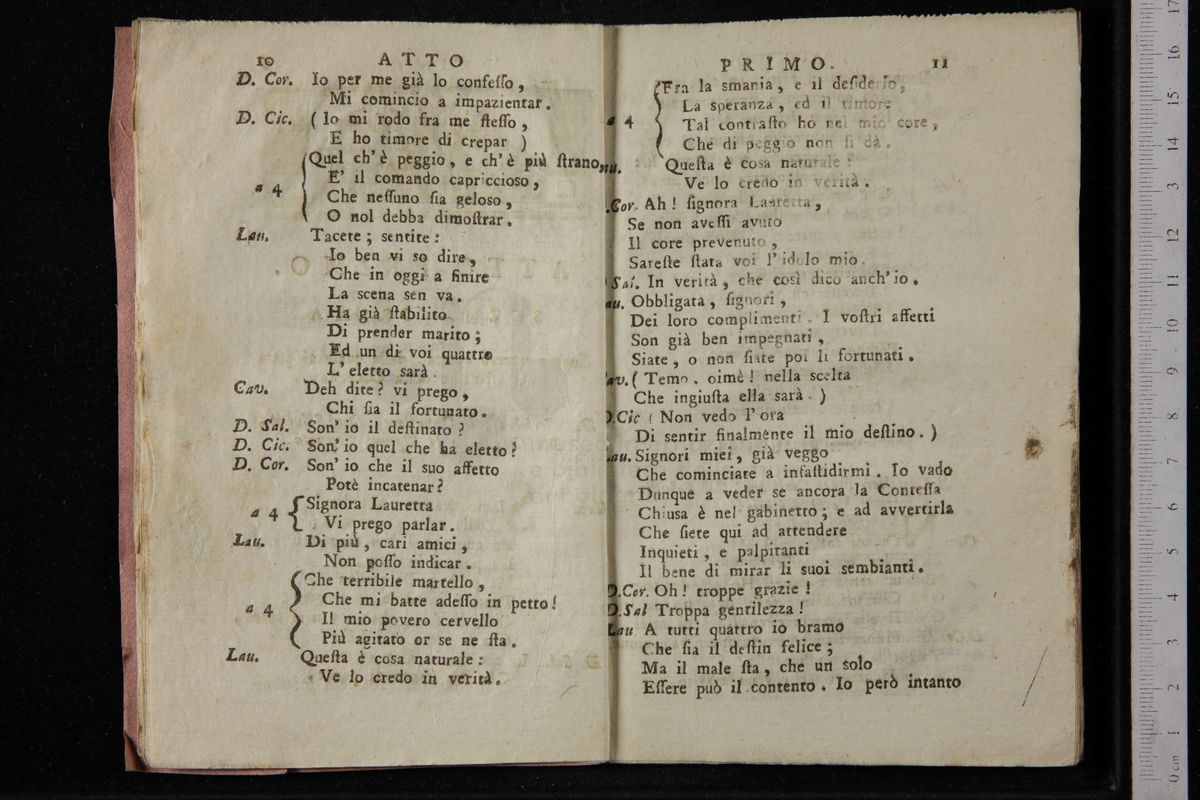 10 ATTO
D. Cor. Io per me già lo confeſſo,
Mi comincio a impazientar.
D. Cic. ( Io mi rodo fra me ſteſſo,
E ho timore di crepar )
Quel ch'è peggio, e ch'è più ſtrano,
E' il comando capriccioso,
a 4
Che neſſuno ſia geloso,
O nol debba dimoſtrar.
Lau. Tacete; sentite:
Io ben vi so dire,
Che in oggi a finire
La scena sen va.
Ha già ſtabilito
Di prender marito;
Ed un di voi quattro
L'eletto sarà.
Cav. Deh dite? vi prego,
Chi ſia il fortunato.
D. Sal. Son' io il deſtinato?
D. Cic. Son' io quel che ha eletto?
D. Cor. Son' io che il suo affetto
Potè incatenar?
a 4 Signora Lauretta
Vi prego parlar.
Lau. Di più, cari amici,
Non poſſo indicar.
Che terribile martello,
Che mi batte adeſſo in petto!
a 4
Il mio povero cervello
Più agitato or se ne ſta.
Lau. Queſta è cosa naturale:
Ve lo credo in verità.
PRIMO. 11
Fra la smania, e il deſiderio,
La speranza, ed il timore
a 4 Tal contraſto ho nel mio core,
Che di peggio non ſi dà.
au. Queſta è cosa naturale:
Ve lo credo in verità.
.Cor. Ah! ſignora Lauretta,
Se non aveſſi avuto
Il core prevenuto,
Sareſte ſtata voi l'idolo mio.
Sal. In verità, che così dico anch'io.
au. Obbligata, ſignori,
Dei loro complimenti. I voſtri affetti
Son già ben impegnati,
Siate, o non ſiate poi li fortunati.
av. ( Temo. oimè! nella scelta
Che ingiuſta ella sarà. )
D.Cic ( Non vedo l'ora
Di sentir finalmente il mio deſtino. )
Lau. Signori miei, già veggo
Che cominciate a infaſtidirmi. Io vado
Dunque a veder se ancora la Conteſſa
Chiusa è nel gabinetto; e ad avvertirla
Che ſiete qui ad attendere
Inquieti, e palpitanti
Il bene di mirar li suoi sembianti.
D.Cor. Oh! troppe grazie!
D.Sal Troppa gentilezza!
Lau A tutti quattro io bramo
Che ſia il deſtin felice;
Ma il male ſta, che un solo
Eſſere può il contento. Io però intanto
0 cm 1 2 3 4 5 6 7 8 9 10 11 12 13 14 15 16 17